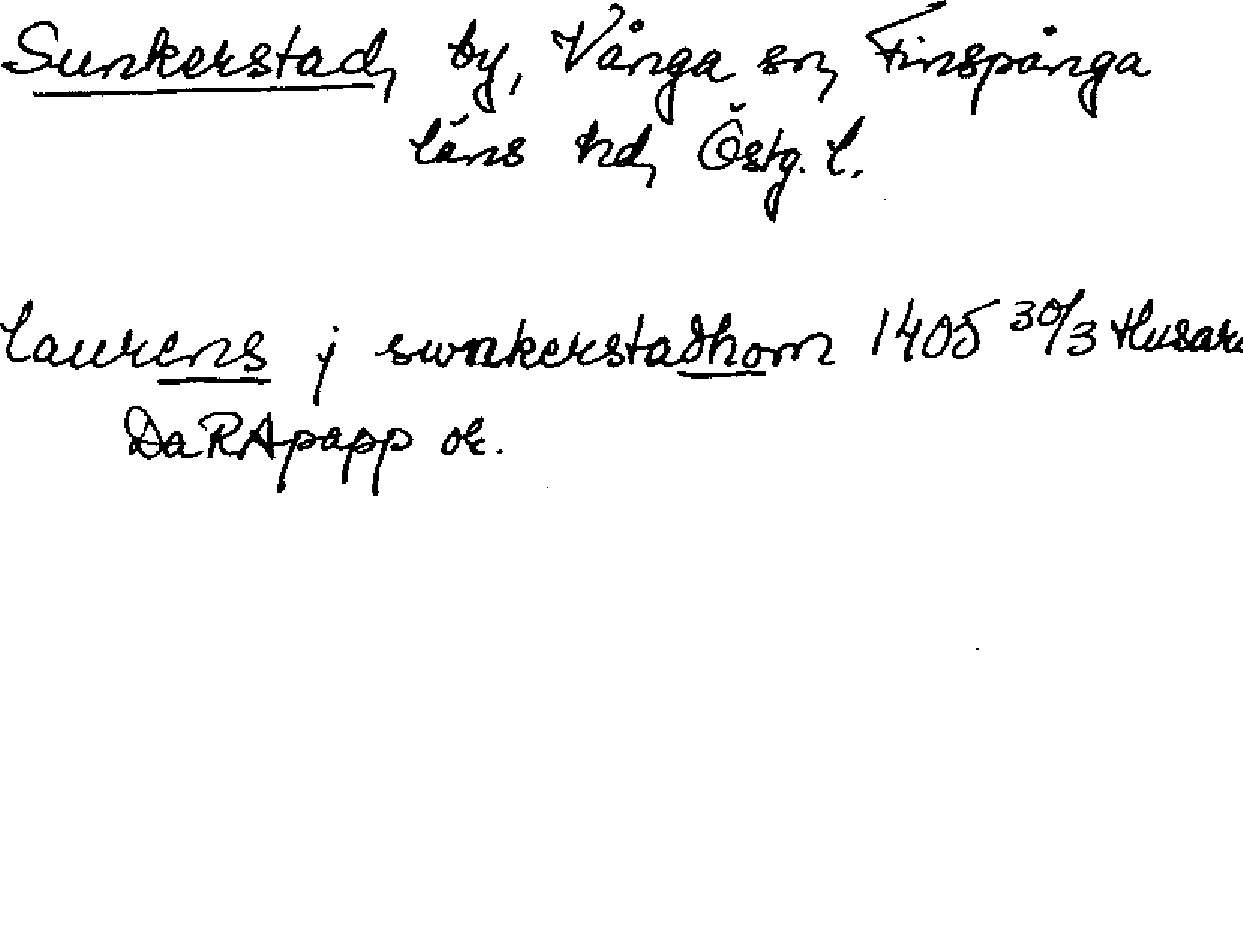 Sunkerstad, by, Vånga sn, Finspånga
läns hd, Östg. l.
laurens j swnkerstadhom 1405 30/3 Husar
DaRApapp or.